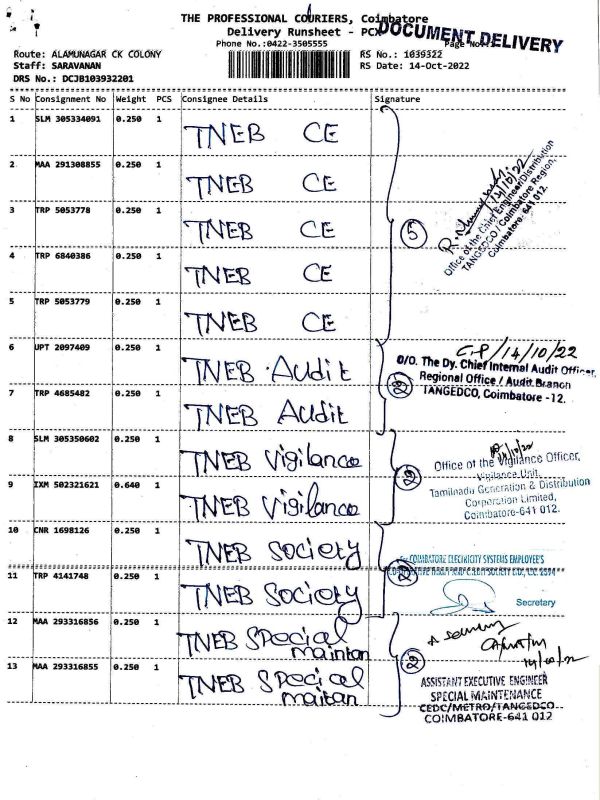 THE PROFESSIONAL COURIERS, Coimbatore
Delivery Runsheet - PCX
DOCUMENT DELIVERY
Phone No.:0422-3505555
Route: ALAMUNAGAR CK COLONY
RS No.: 1039322
Staff: SARAVANAN
RS Date: 14-Oct-2022
DRS No.: DCJB103932201
S No Consignment No Weight PCS Consignee Details Signature
1 SLM 305334091 0.250 1 TNEB CE
2 MAA 291308855 0.250 1 TNEB CE
3 TRP 5053778 0.250 1 TNEB CE
4 TRP 6840386 0.250 1 TNEB CE
5 TRP 5053779 0.250 1 TNEB CE
5
14/10/22
Office of the Chief Engineer/Distribution
TANGEDCO / Coimbatore Region,
Coimbatore-641 012.
6 UPT 2097409 0.250 1 TNEB Audit
7 TRP 4685482 0.250 1 TNEB Audit
C.P/14/10/22
O/O. The Dy. Chief Internal Audit Officer,
Regional Office / Audit Branch
TANGEDCO, Coimbatore -12.
8 SLM 305350602 0.250 1 TNEB Vigilance
9 IXM 502321621 0.640 1 TNEB Vigilance
Office of the Vigilance Officer,
Vigilance Unit,
Tamilnadu Generation & Distribution
Corporation Limited,
Coimbatore-641 012.
10 CNR 1698126 0.250 1 TNEB Society
11 TRP 4141748 0.250 1 TNEB Society
For COIMBATORE ELECTRICITY SYSTEMS EMPLOYEE'S
Secretary
12 MAA 293316856 0.250 1 TNEB Special
maintan
13 MAA 293316855 0.250 1 TNEB Special
maitan
ASSISTANT EXECUTIVE ENGINEER
SPECIAL MAINTENANCE
CEDC/METRO/TANGEDCO
COIMBATORE-641 012